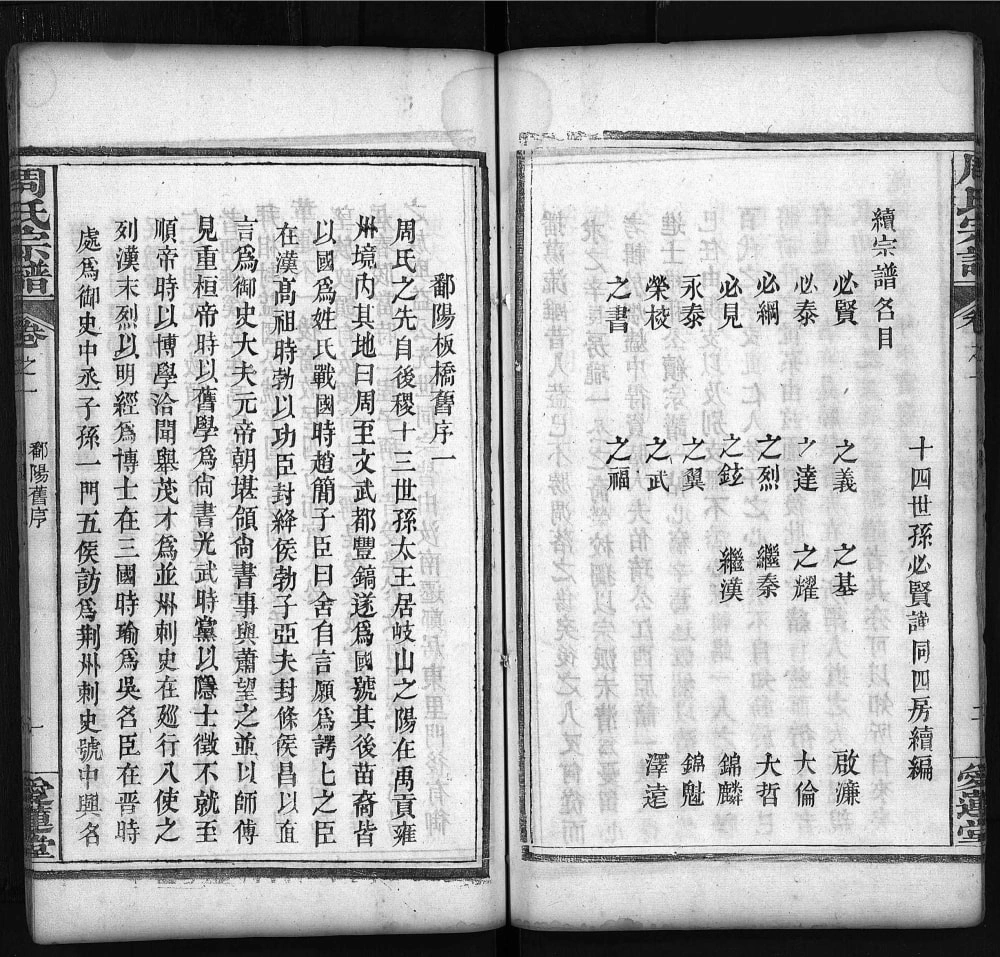 續宗譜名目
十四世孫必賢諱同四房續編
必賢 之義 之基 啟濂
必泰 之達 之耀 大倫
必綱 之烈 繼秦 大哲
必見 之鉉 繼漢 錦麟
永泰 之翼 錦魁
榮椄 之武 澤遠
之書 之福
周氏宗譜 卷之一 愛蓮堂
鄱陽板橋舊序一
周氏之先自後稷十三世孫太王居岐山之陽在禹貢雍
州境内其地曰周至文武都豐鎬遂爲國號其後苗裔皆
以國爲姓氏戰國時趙簡子臣曰舍自言願爲諤上之臣
在漢髙祖時勃以功臣封絳侯勃子亞夫封條侯昌以直
言爲御史大夫元帝朝堪領尙書事與蕭望之並以師傅
見重桓帝時以舊學爲尙書光武時黨以隱士徵不就至
順帝時以博學洽聞舉茂才爲並州刺史在廵行八使之
列漢末烈以明經爲博士在三國時瑜爲吳名臣在晋時
處爲御史中丞子孫一門五侯訪爲荆州刺史號中興名
周氏宗譜 卷之一 鄱陽舊序 一 愛蓮堂